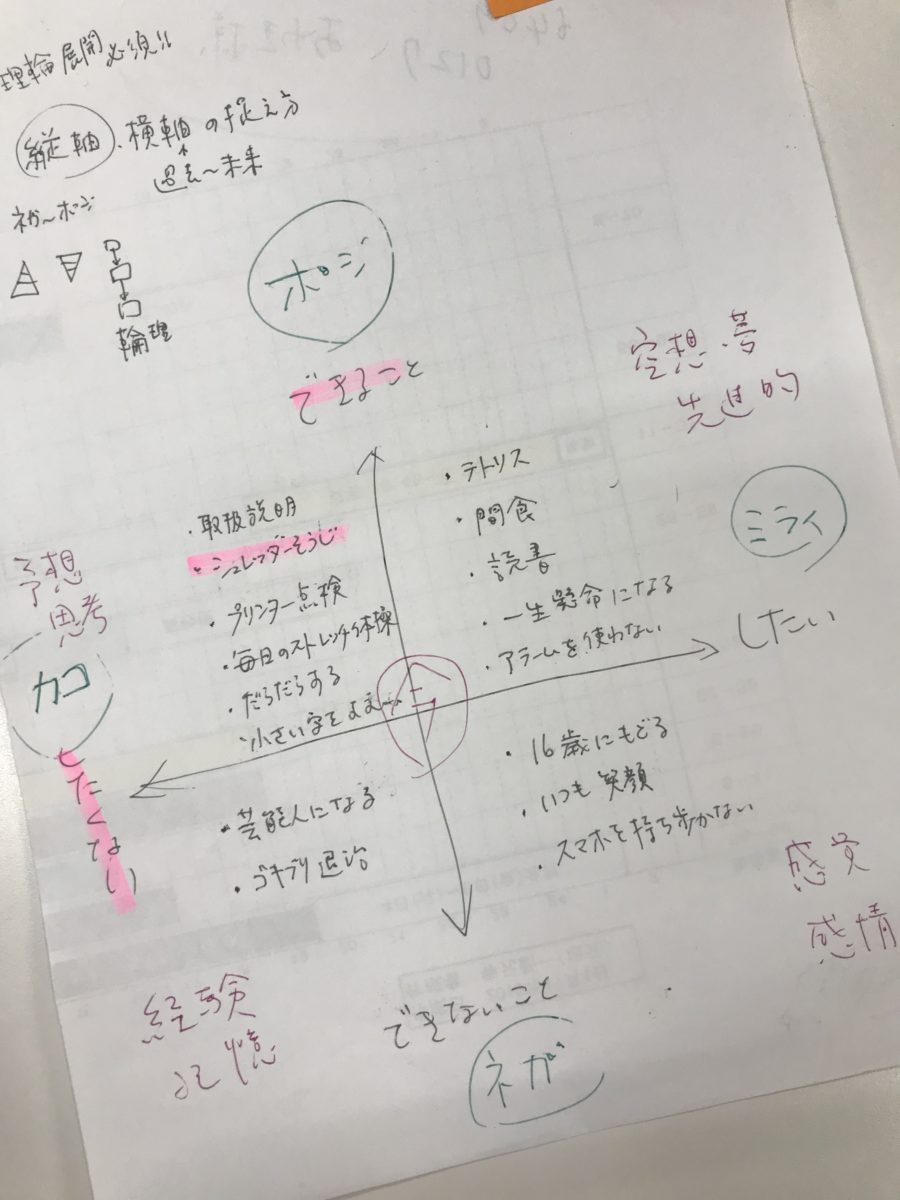 理輪展開必須!!
縦軸、横軸の捉え方
過去〜未来
ネガ〜ポジ
輪理
ポジ
できること
空想・夢
先進的
・テトリス
・間食
・読書
・一生懸命になる
・アラームを使わない
ミライ
したい
・取扱説明
・シュレッダーそうじ
・プリンター点検
・毎日のストレッチ体操
・だらだらする
・小さい字をよむ
予想
思考
カコ
したくない
・芸能人になる
・ゴキブリ退治
・16歳にもどる
・いつも笑顔
・スマホを持ち歩かない
感覚
感情
経験
記憶
できないこと
ネガ